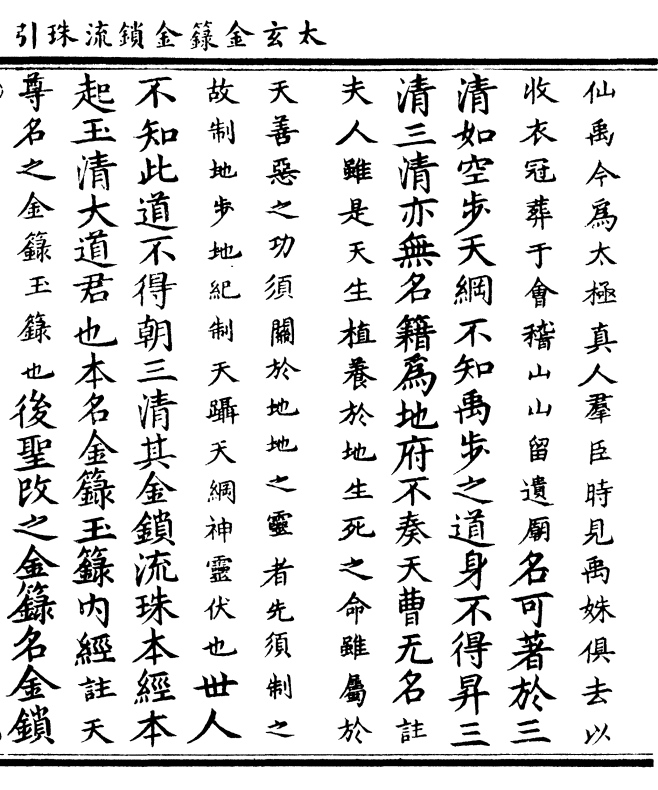 太玄金籙金鎖流珠引
仙禹今為太極真人羣臣時見禹姝俱去以
收衣冠葬于會稽山山留遺廟名可著於三
清如空步天綱不知禹步之道身不得昇三
清三清亦無名籍為地府不奏天曹无名註
夫人雖是天生植養於地生死之命雖屬於
天善惡之功須關於地地之靈者先須制之
故制地步地紀制天躡天綱神靈伏也世人
不知此道不得朝三清其金鎖流珠本經本
起玉清大道君也本名金籙玉籙內經註天
尊名之金籙玉籙也後聖改之金籙名金鎖